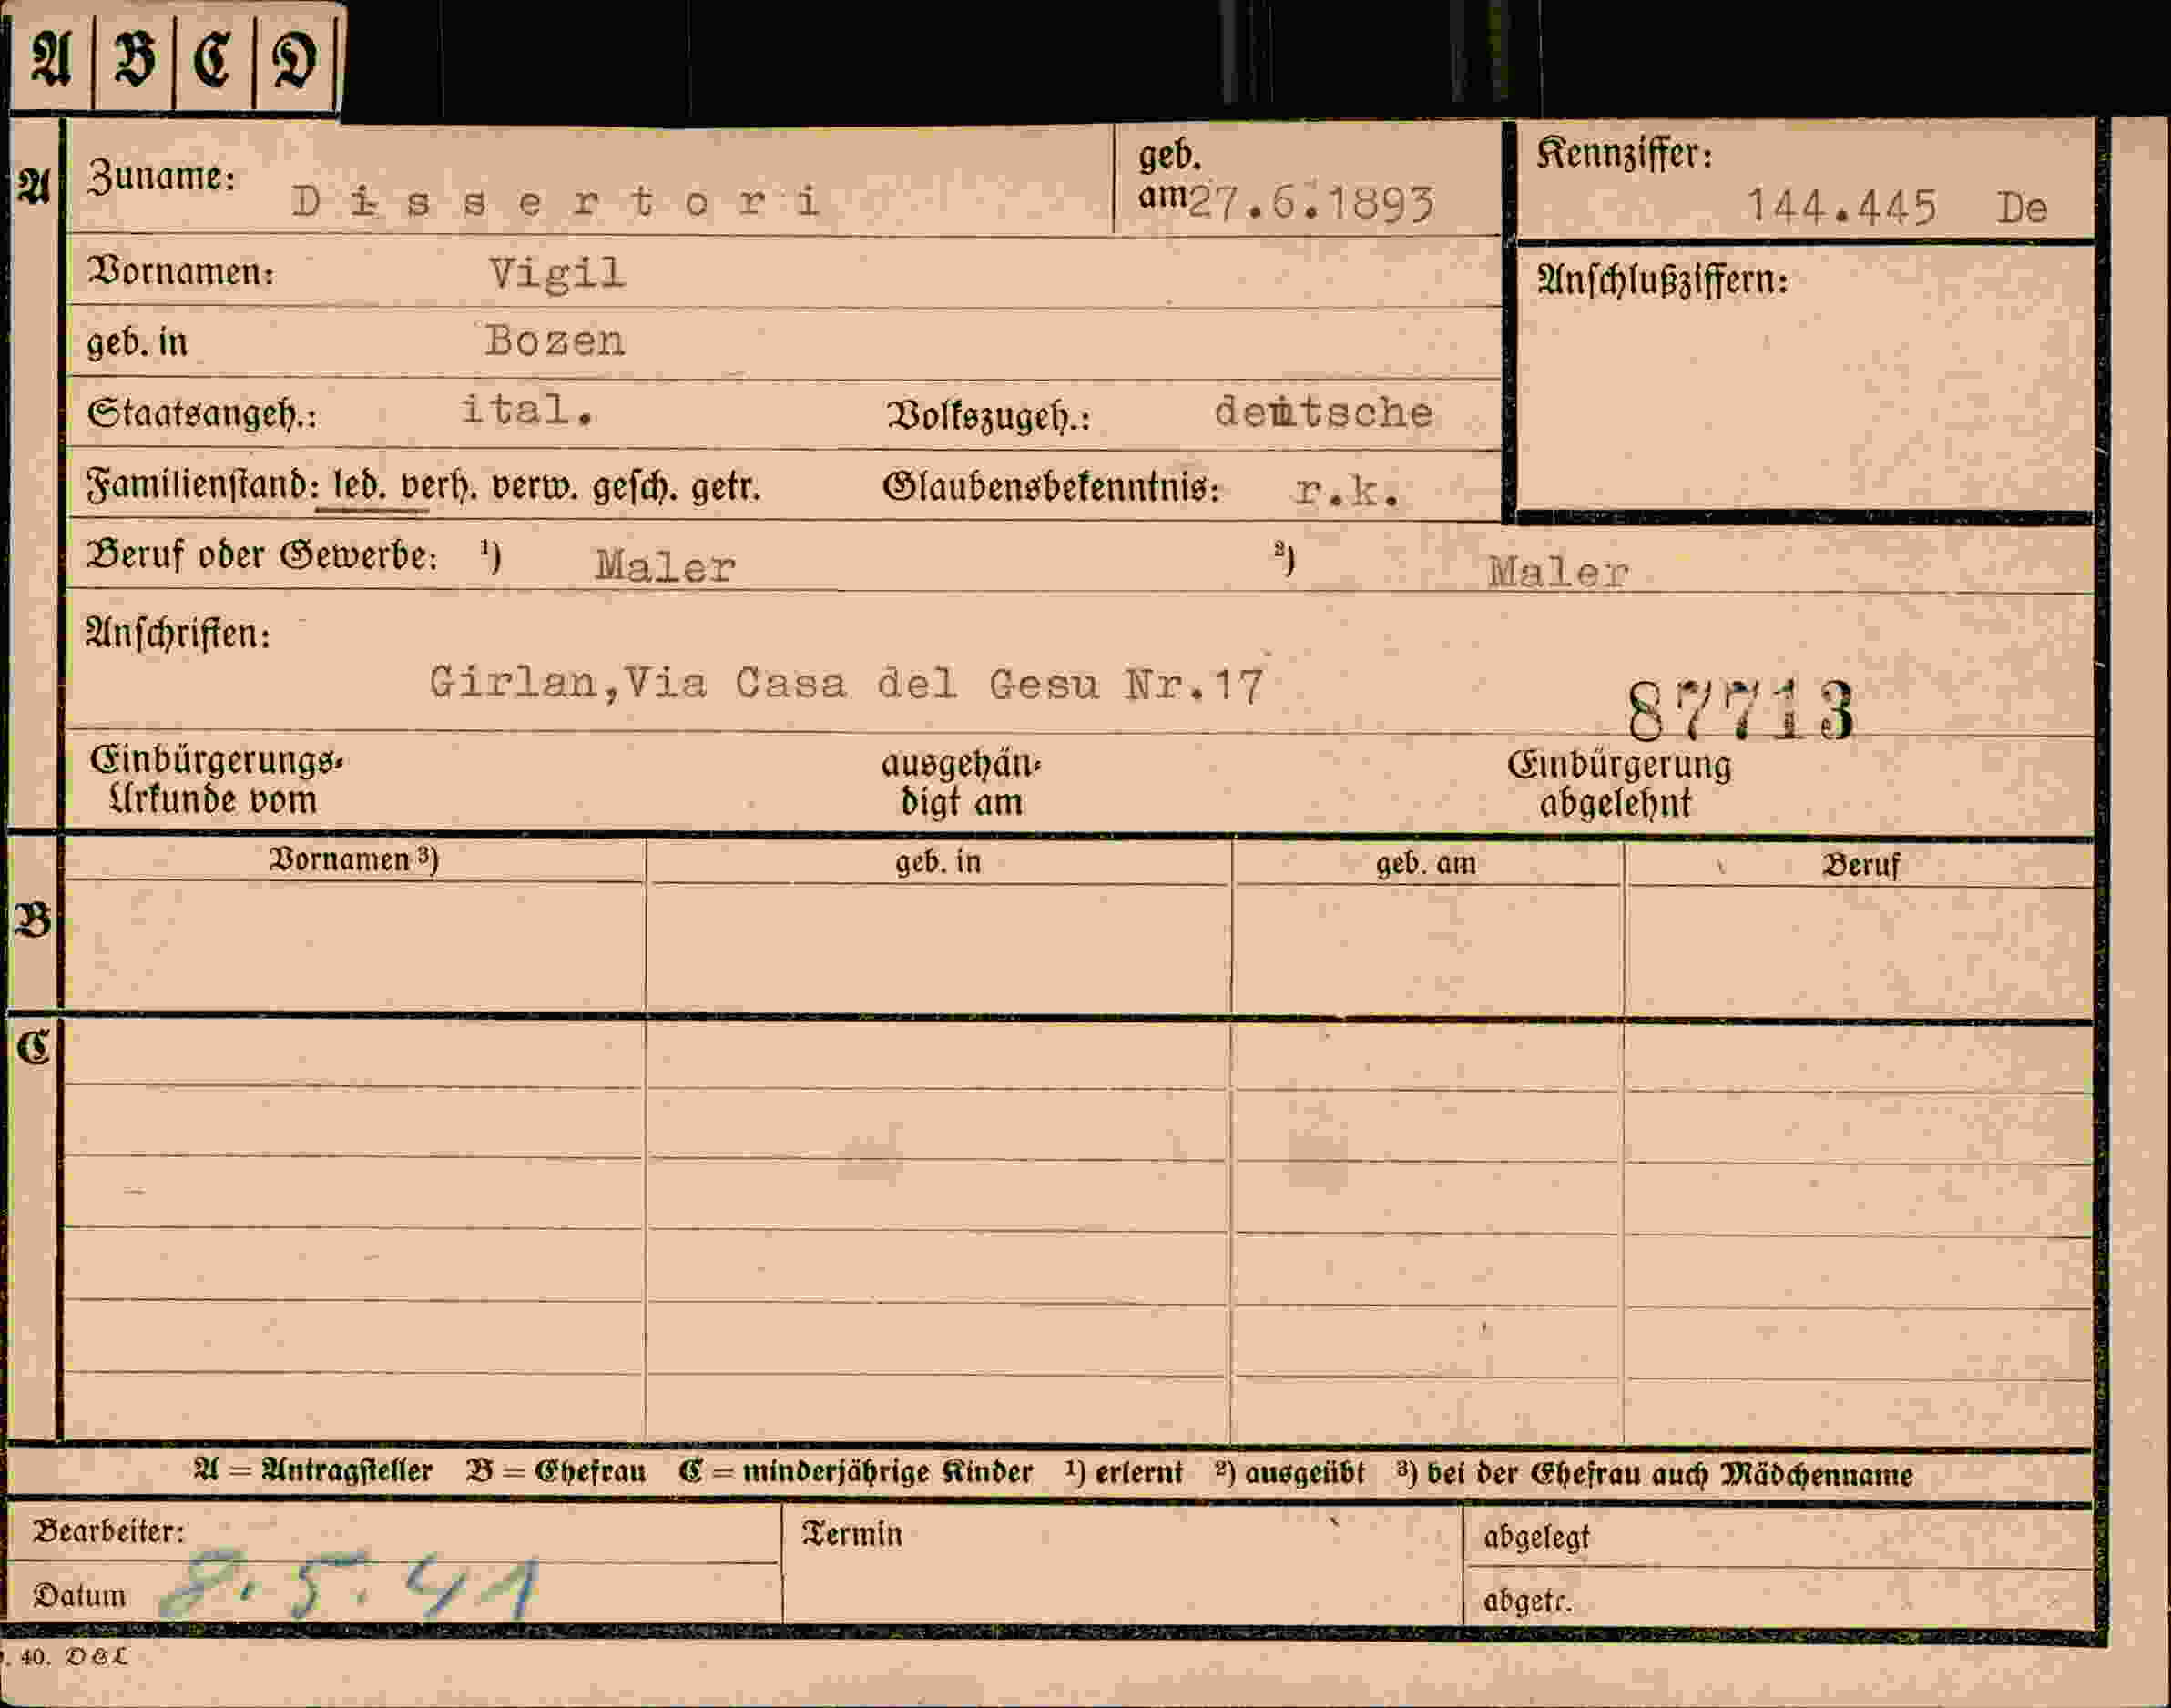 A B C D
A Zuname: Dissertori geb. am 27.6.1893 Kennziffer: 144.445 De
Vornamen: Vigil Anschlußziffern:
geb. in Bozen
Staatsangeh.: ital. Volkszugeh.: deutsche
Familienstand: led. verh. verw. gesch. getr. Glaubensbekenntnis: r.k.
Beruf oder Gewerbe: ¹) Maler ²) Maler
Anschriften:
Girlan,Via Casa del Gesu Nr.17
87713
Einbürgerungs- ausgehän- Einbürgerung
Urkunde vom digt am abgelehnt
Vornamen ³) geb. in geb. am Beruf
B
C
A = Antragsteller B = Ehefrau C = minderjährige Kinder ¹) erlernt ²) ausgeübt ³) bei der Ehefrau auch Mädchenname
Bearbeiter: Termin abgelegt
Datum 8.5.41 abgetr.
. 40. D&L